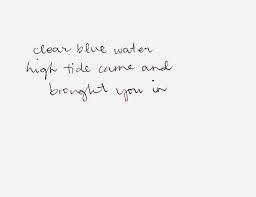 clear blue water
high tide came and
brought you in